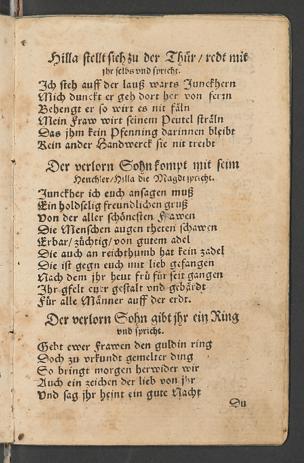 Hilla stellt sich zu der Thür / redt mit
jhr selbs vnd spricht.
Ich steh auff der lauß warts Junckhern
Mich dunckt er geh dort her von fern
Behengt er so wirt es nit fäln
Mein Fraw wirt seinem Peutel sträln
Das jhm kein Pfenning darinnen bleibt
Kein ander Handwerck sie nit treibt
Der verlorn Sohn kompt mit seim
Heuchler / Hilla die Magdt spricht.
Junckher ich euch ansagen muß
Ein holdselig freundlichen gruß
Von der aller schönesten Frawen
Die Menschen augen theten schawen
Erbar / züchtig / von gutem adel
Die auch an reichthumb hat kein zadel
Die ist gegn euch mit lieb gefangen
Nach dem jhr heut frü für seit gangen
Ihr gfelt ewr gestalt vnd gebärdt
Für alle Männer auff der erdt.
Der verlorn Sohn gibt jhr ein Ring
vnd spricht.
Gebt ewer Frawen den guldin ring
Doch zu vrkundt gemelter ding
So bringt morgen herwider wir
Auch ein zeichen der lieb von jhr
Vnd sag jhr heint ein gute Nacht
Du